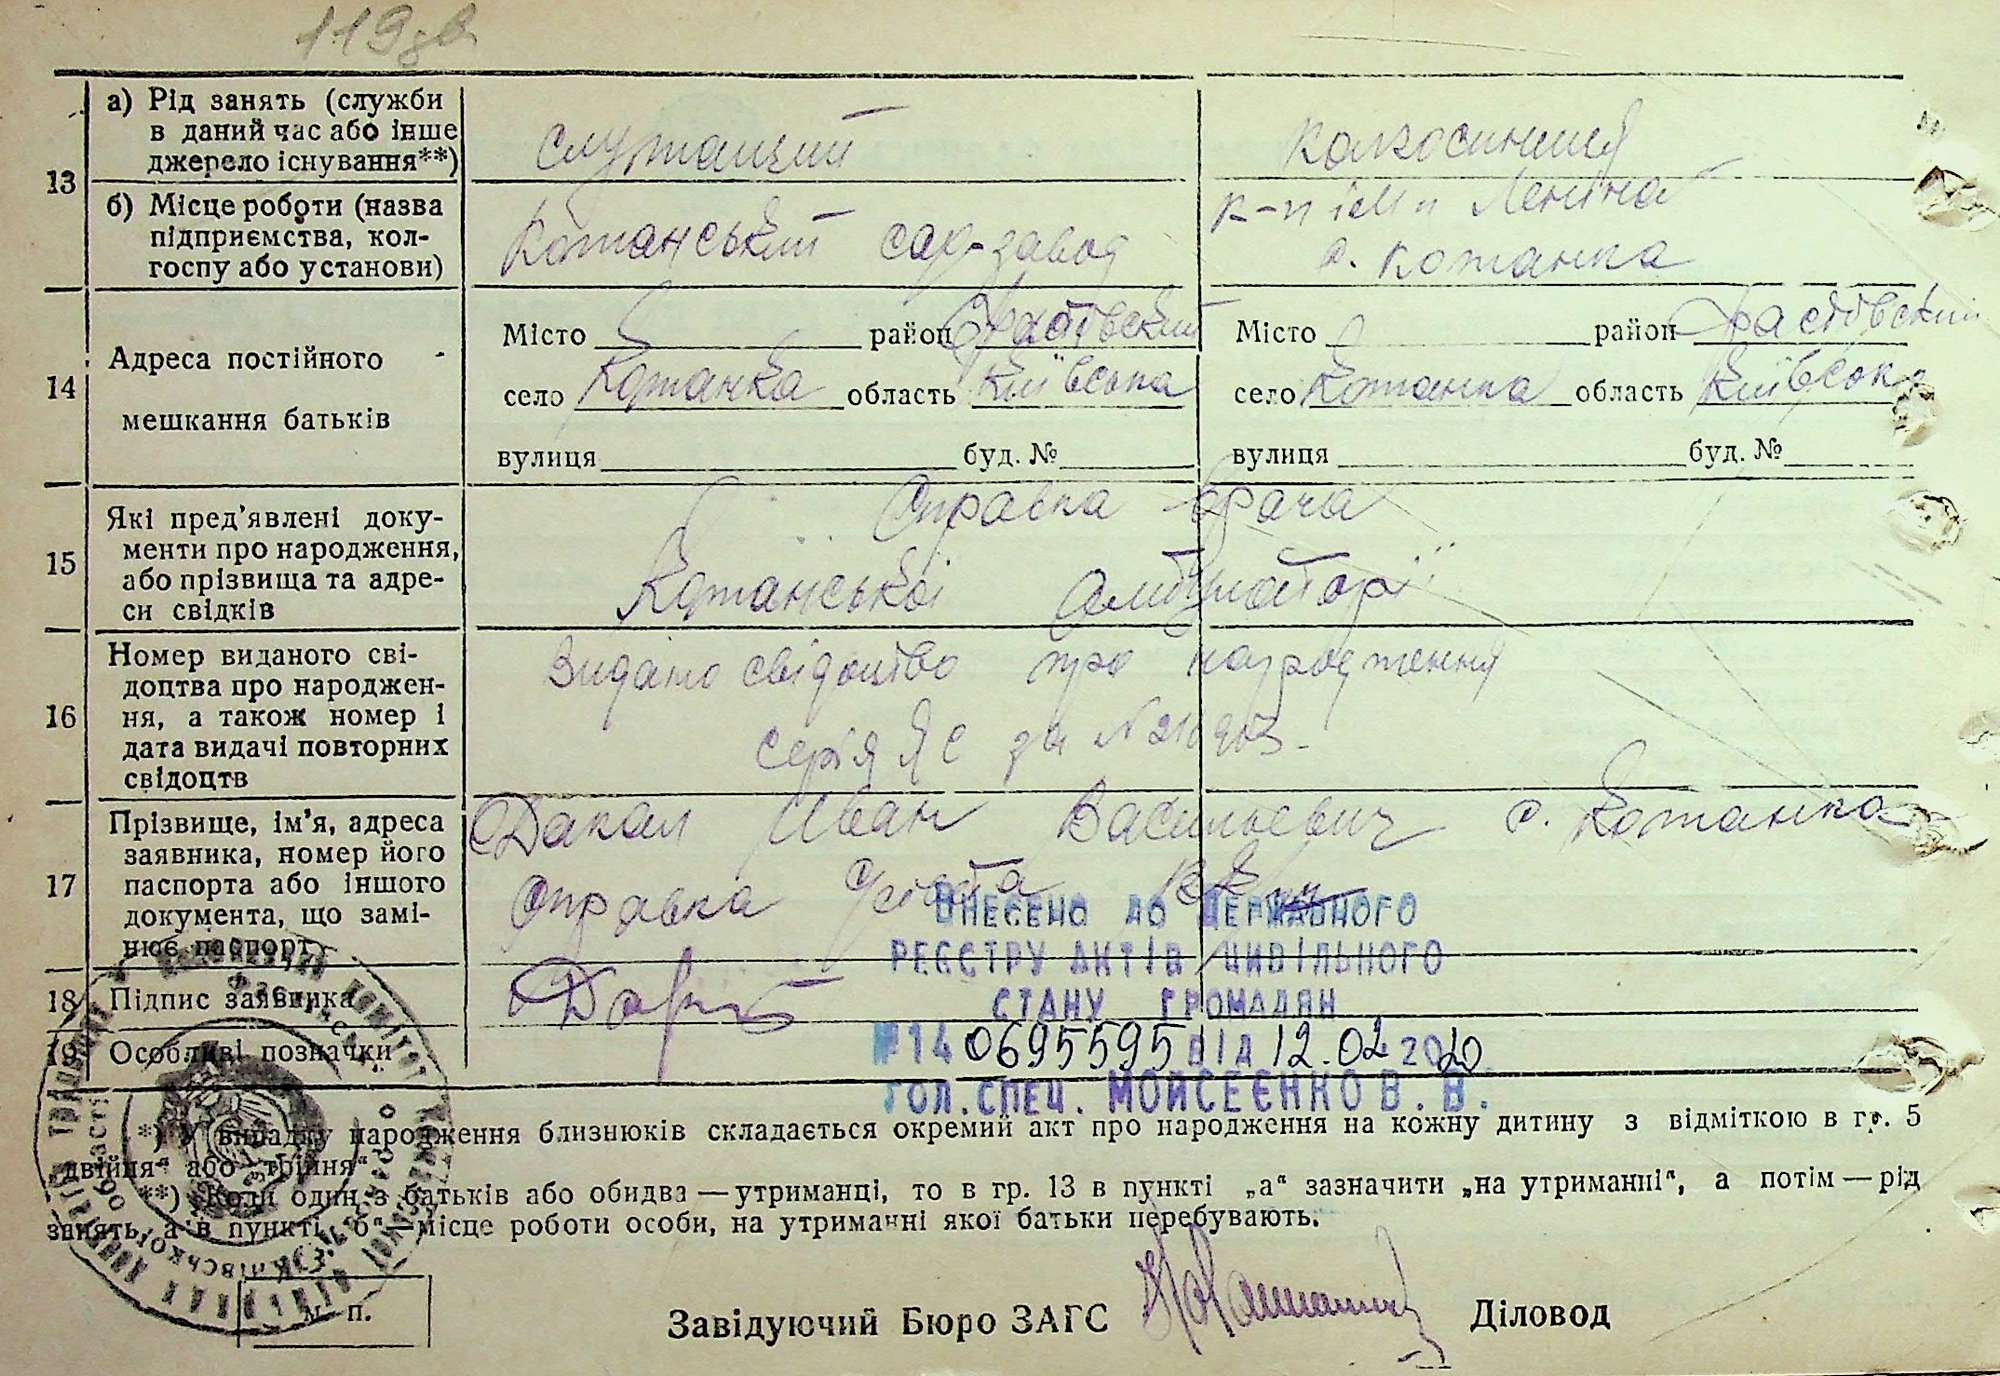 119зв
13
а) Рід занять (служби
в даний час або інше
джерело існування**)
служащий
колхосниця
б) Місце роботи (назва
підприємства, кол-
госпу або установи)
Кожанський сах-завод
к-п ім. Леніна
с. Кожанка
14
Адреса постійного
мешкання батьків
Місто район Фастівський
село Кожанка область Київська
вулиця буд. №
Місто район Фастівський
село Кожанка область Київська
вулиця буд. №
15
Які пред'явлені доку-
менти про народження,
або прізвища та адре-
си свідків
Справка врача
Кожанської амбулаторії
16
Номер виданого сві-
доцтва про народжен-
ня, а також номер і
дата видачі повторних
свідоцтв
Видано свідоцтво про народження
серія ЯС за №
17
Прізвище, ім'я, адреса
заявника, номер його
паспорта або іншого
документа, що замі-
нює паспорт
Иван Васильевич с. Кожанка
Справка
Внесено до Державного
реєстру актів цивільного
стану громадян
№ 14 0695595 від 12.02 2020
гол. спец. Мойсеєнко В. В.
18
Підпис заявника
19
Особливі позначки
*) У випадку народження близнюків складається окремий акт про народження на кожну дитину з відміткою в гр. 5
„двійня" або „трійня".
**) Коли один з батьків або обидва — утриманці, то в гр. 13 в пункті „а" зазначити „на утриманні", а потім — рід
занять, а в пункті „б" — місце роботи особи, на утриманні якої батьки перебувають.
м. п.
Завідуючий Бюро ЗАГС
Діловод